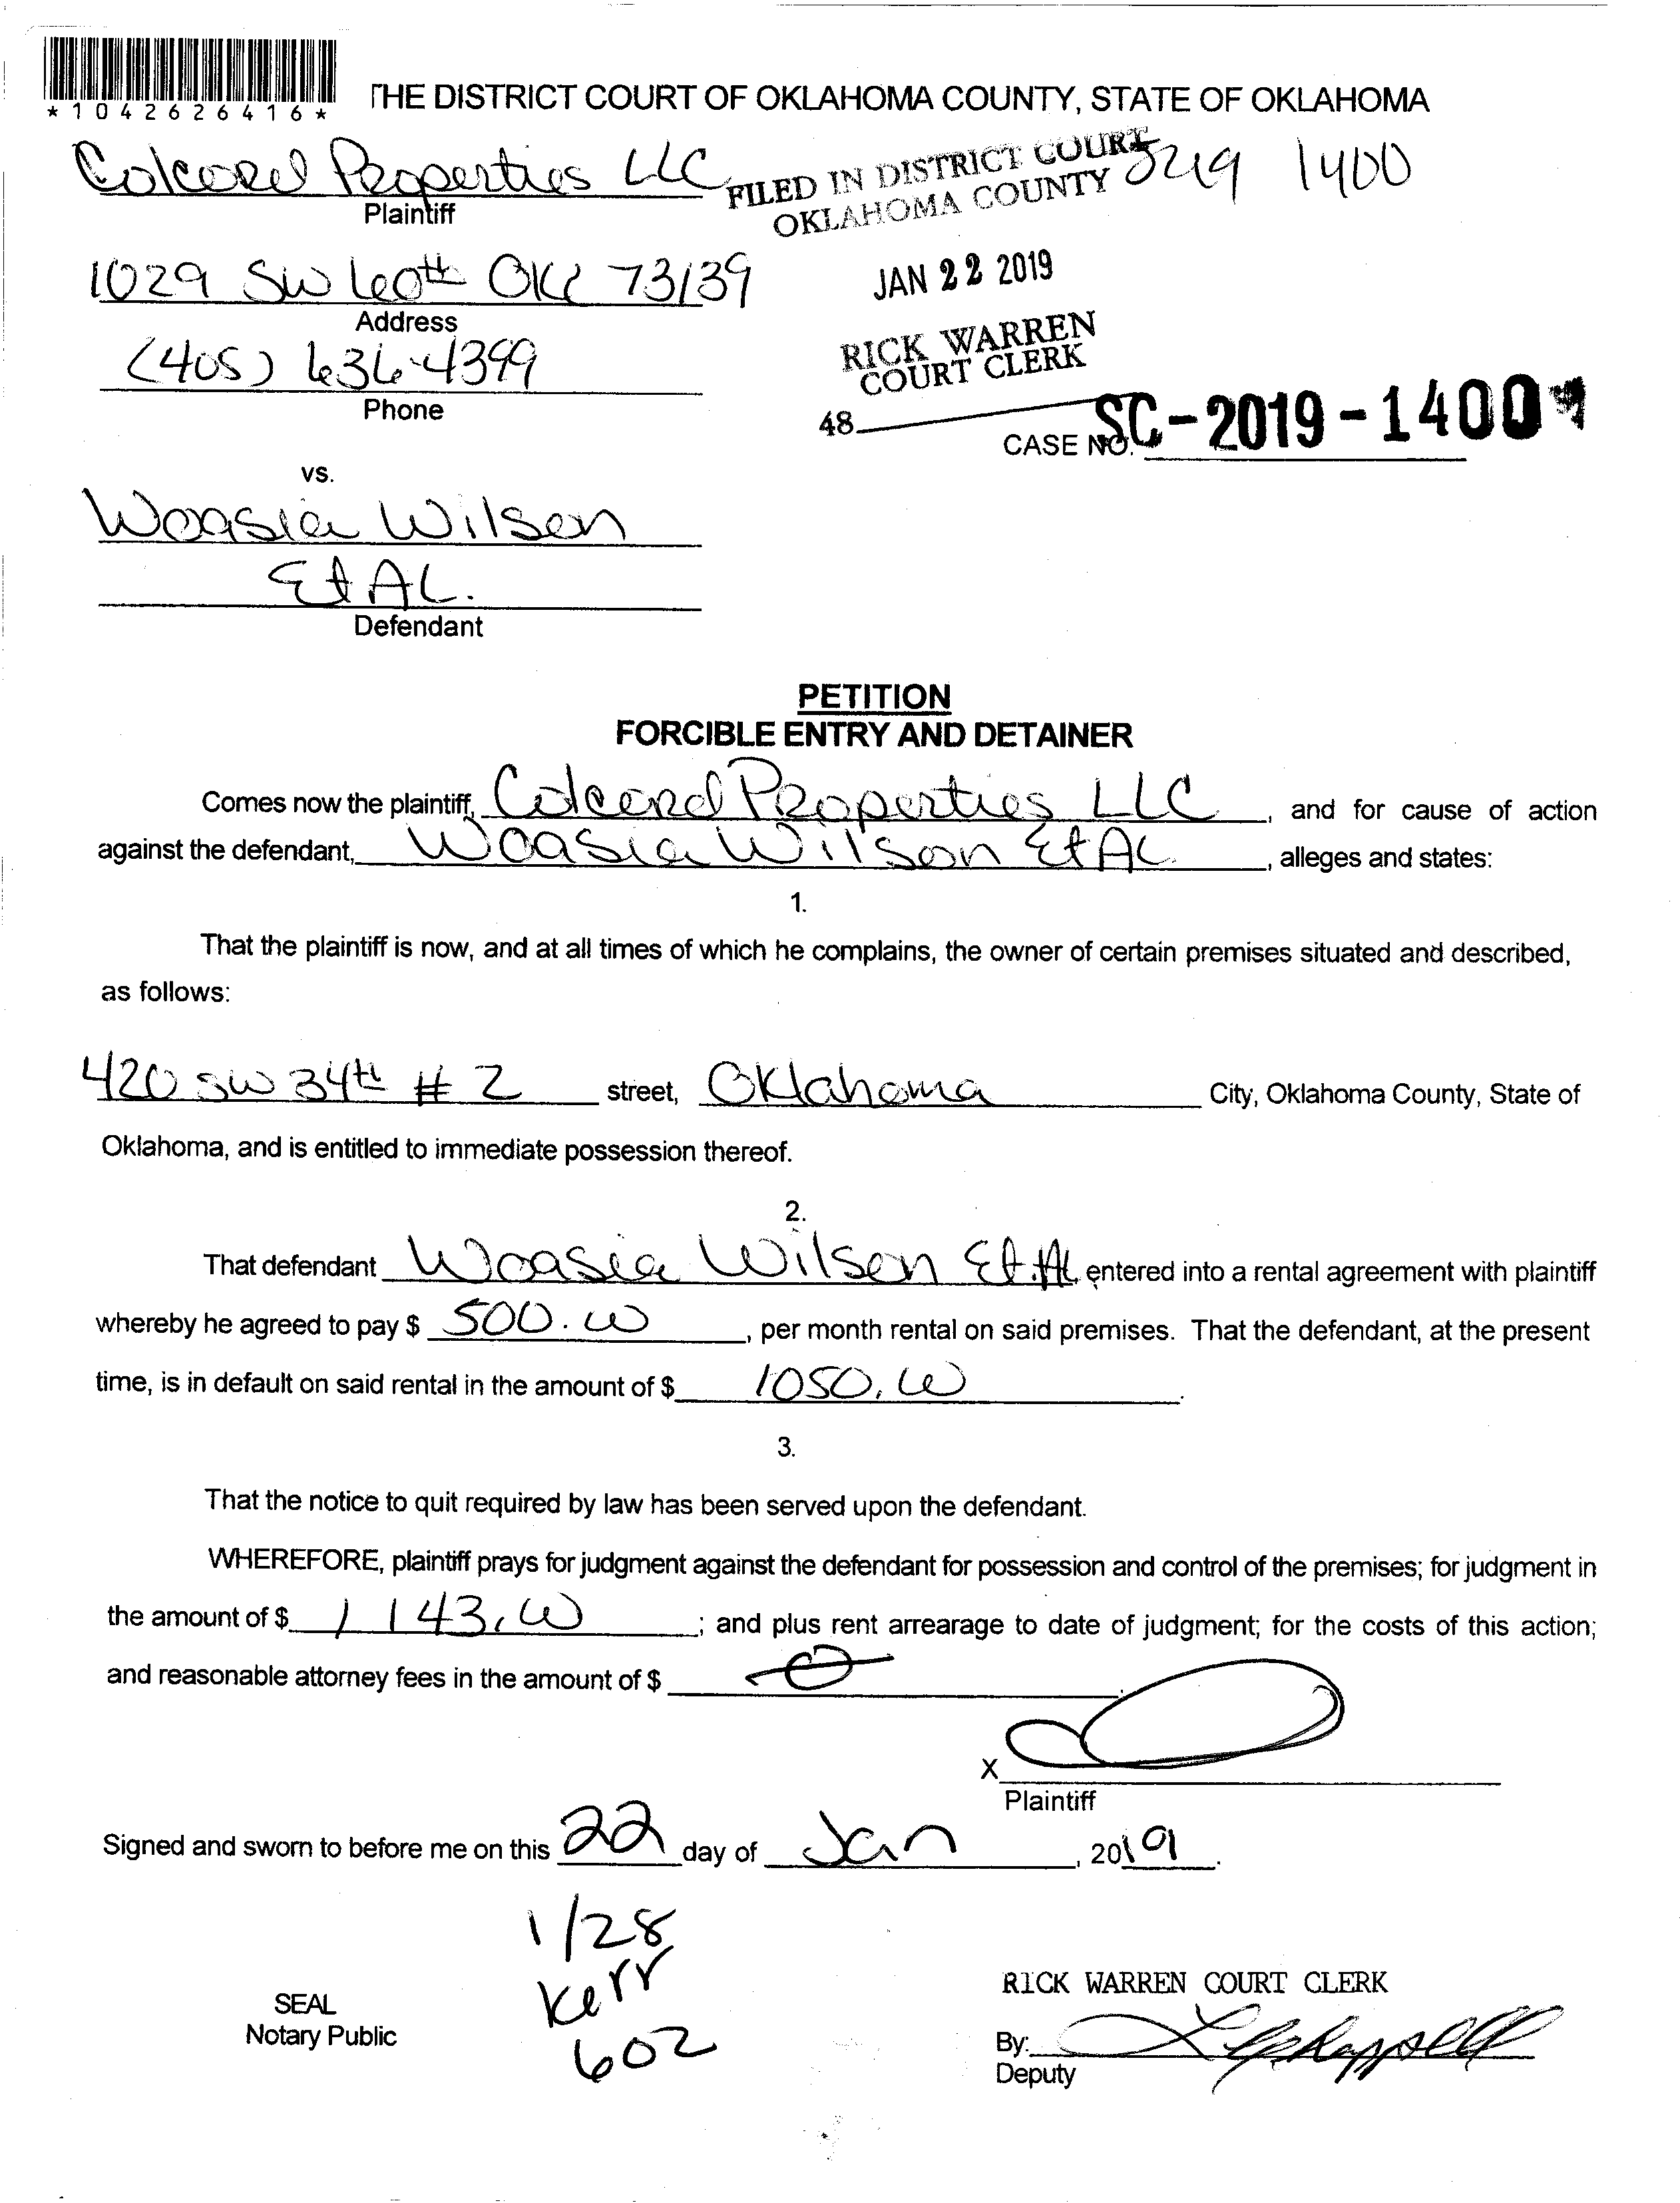 *1042626416*
THE DISTRICT COURT OF OKLAHOMA COUNTY, STATE OF OKLAHOMA
Colcord Properties LLC
Plaintiff
FILED IN DISTRICT COURT
OKLAHOMA COUNTY
1400
1029 SW 60th OKC 73139
Address
JAN 22 2019
(405) 636-4399
Phone
RICK WARREN
COURT CLERK
48
CASE NO. SC-2019-1400
vs.
Woasia Wilson
Et AL.
Defendant
PETITION
FORCIBLE ENTRY AND DETAINER
Comes now the plaintiff, Colcord Properties LLC, and for cause of action
against the defendant, Woasia Wilson Et AL, alleges and states:
1.
That the plaintiff is now, and at all times of which he complains, the owner of certain premises situated and described,
as follows:
420 SW 34th # 2 street, Oklahoma City, Oklahoma County, State of
Oklahoma, and is entitled to immediate possession thereof.
2.
That defendant Woasia Wilson Et. AL, entered into a rental agreement with plaintiff
whereby he agreed to pay $ 500.00, per month rental on said premises. That the defendant, at the present
time, is in default on said rental in the amount of $ 1050.00.
3.
That the notice to quit required by law has been served upon the defendant.
WHEREFORE, plaintiff prays for judgment against the defendant for possession and control of the premises; for judgment in
the amount of $ 1143.00; and plus rent arrearage to date of judgment; for the costs of this action;
and reasonable attorney fees in the amount of $ 0.
X
Plaintiff
Signed and sworn to before me on this 22 day of Jan, 2019.
1/28
Kerr
602
SEAL
Notary Public
RICK WARREN COURT CLERK
By:
Deputy